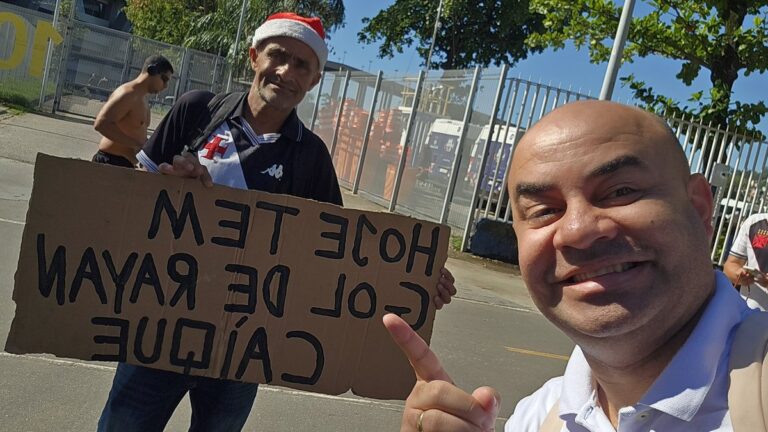 HOJE TEM
GOL DE RAYAN
CAÍQUE